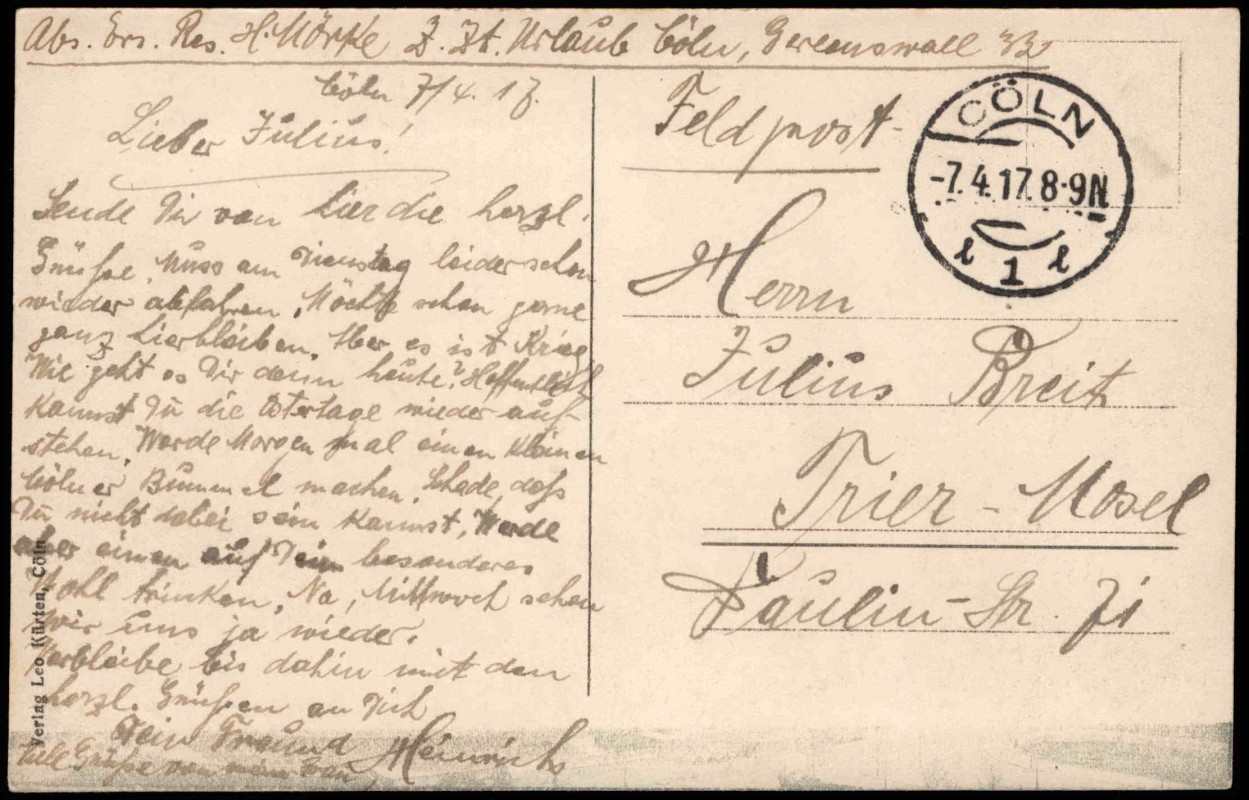 Abs. Ers. Res. H. Mörkle z. Zt. Urlaub Cöln, Gereonswall 33
Cöln 7/4. 17.
Lieber Julius!
Sende Dir von hier die herzl.
Grüße. Muss am Dienstag leider schon
wieder abfahren. Möchte schon gerne
ganz hierbleiben. Aber es ist Krieg
Wie geht es Dir denn heute? Hoffentlich
kannst Du die Ostertage wieder auf-
stehen. Werde Morgen mal einen kleinen
Cölner Bummel machen. Schade, daß
Du nicht dabei sein kannst, Werde
aber einen auf Dein besonderes
Wohl trinken. Na, Mittwoch sehen
wir uns ja wieder.
Verbleibe bis dahin mit den
herzl. Grüßen an Dich
Dein Freund Heinrich
Grüße von
Verlag Leo Kürten, Cöln
Feldpost
CÖLN
-7.4.17.8-9N
l 1 l
Herrn
Julius Breit
Trier - Mosel
Paulin-Str. 71